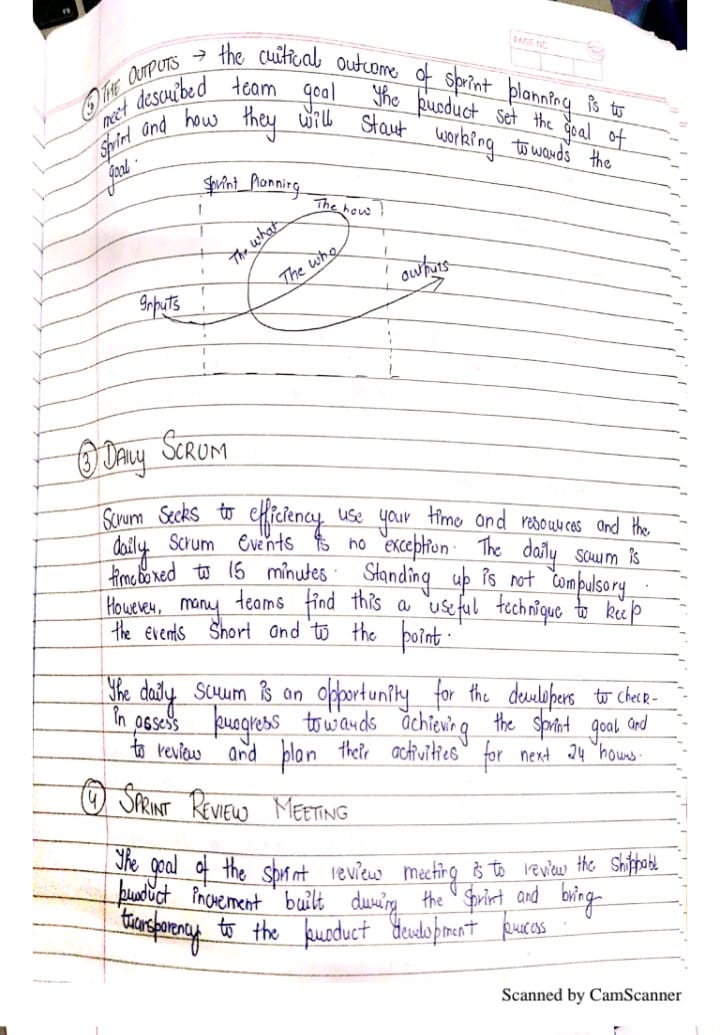 PAGE NO.
⑤ THE OUTPUTS → the critical outcome of sprint planning is to
meet described team goal The product set the goal of
sprint and how they will start working towards the
goal.
Sprint Planning
The how
The what
The who
outputs
Inputs
③ DAILY SCRUM
Scrum Seeks to efficiency use your time and resources and the
daily Scrum Events is no exception. The daily scrum is
timeboxed to 15 minutes. Standing up is not Compulsory.
However, many teams find this a useful technique to keep
the events Short and to the point.
The daily scrum is an opportunity for the developers to check-
in assess progress towards achieving the sprint goal and
to review and plan their activities for next 24 hours.
④ SPRINT REVIEW MEETING
The goal of the sprint review meeting is to review the Shippable
product increment built during the Sprint and bring
transparency to the product development process.
Scanned by CamScanner